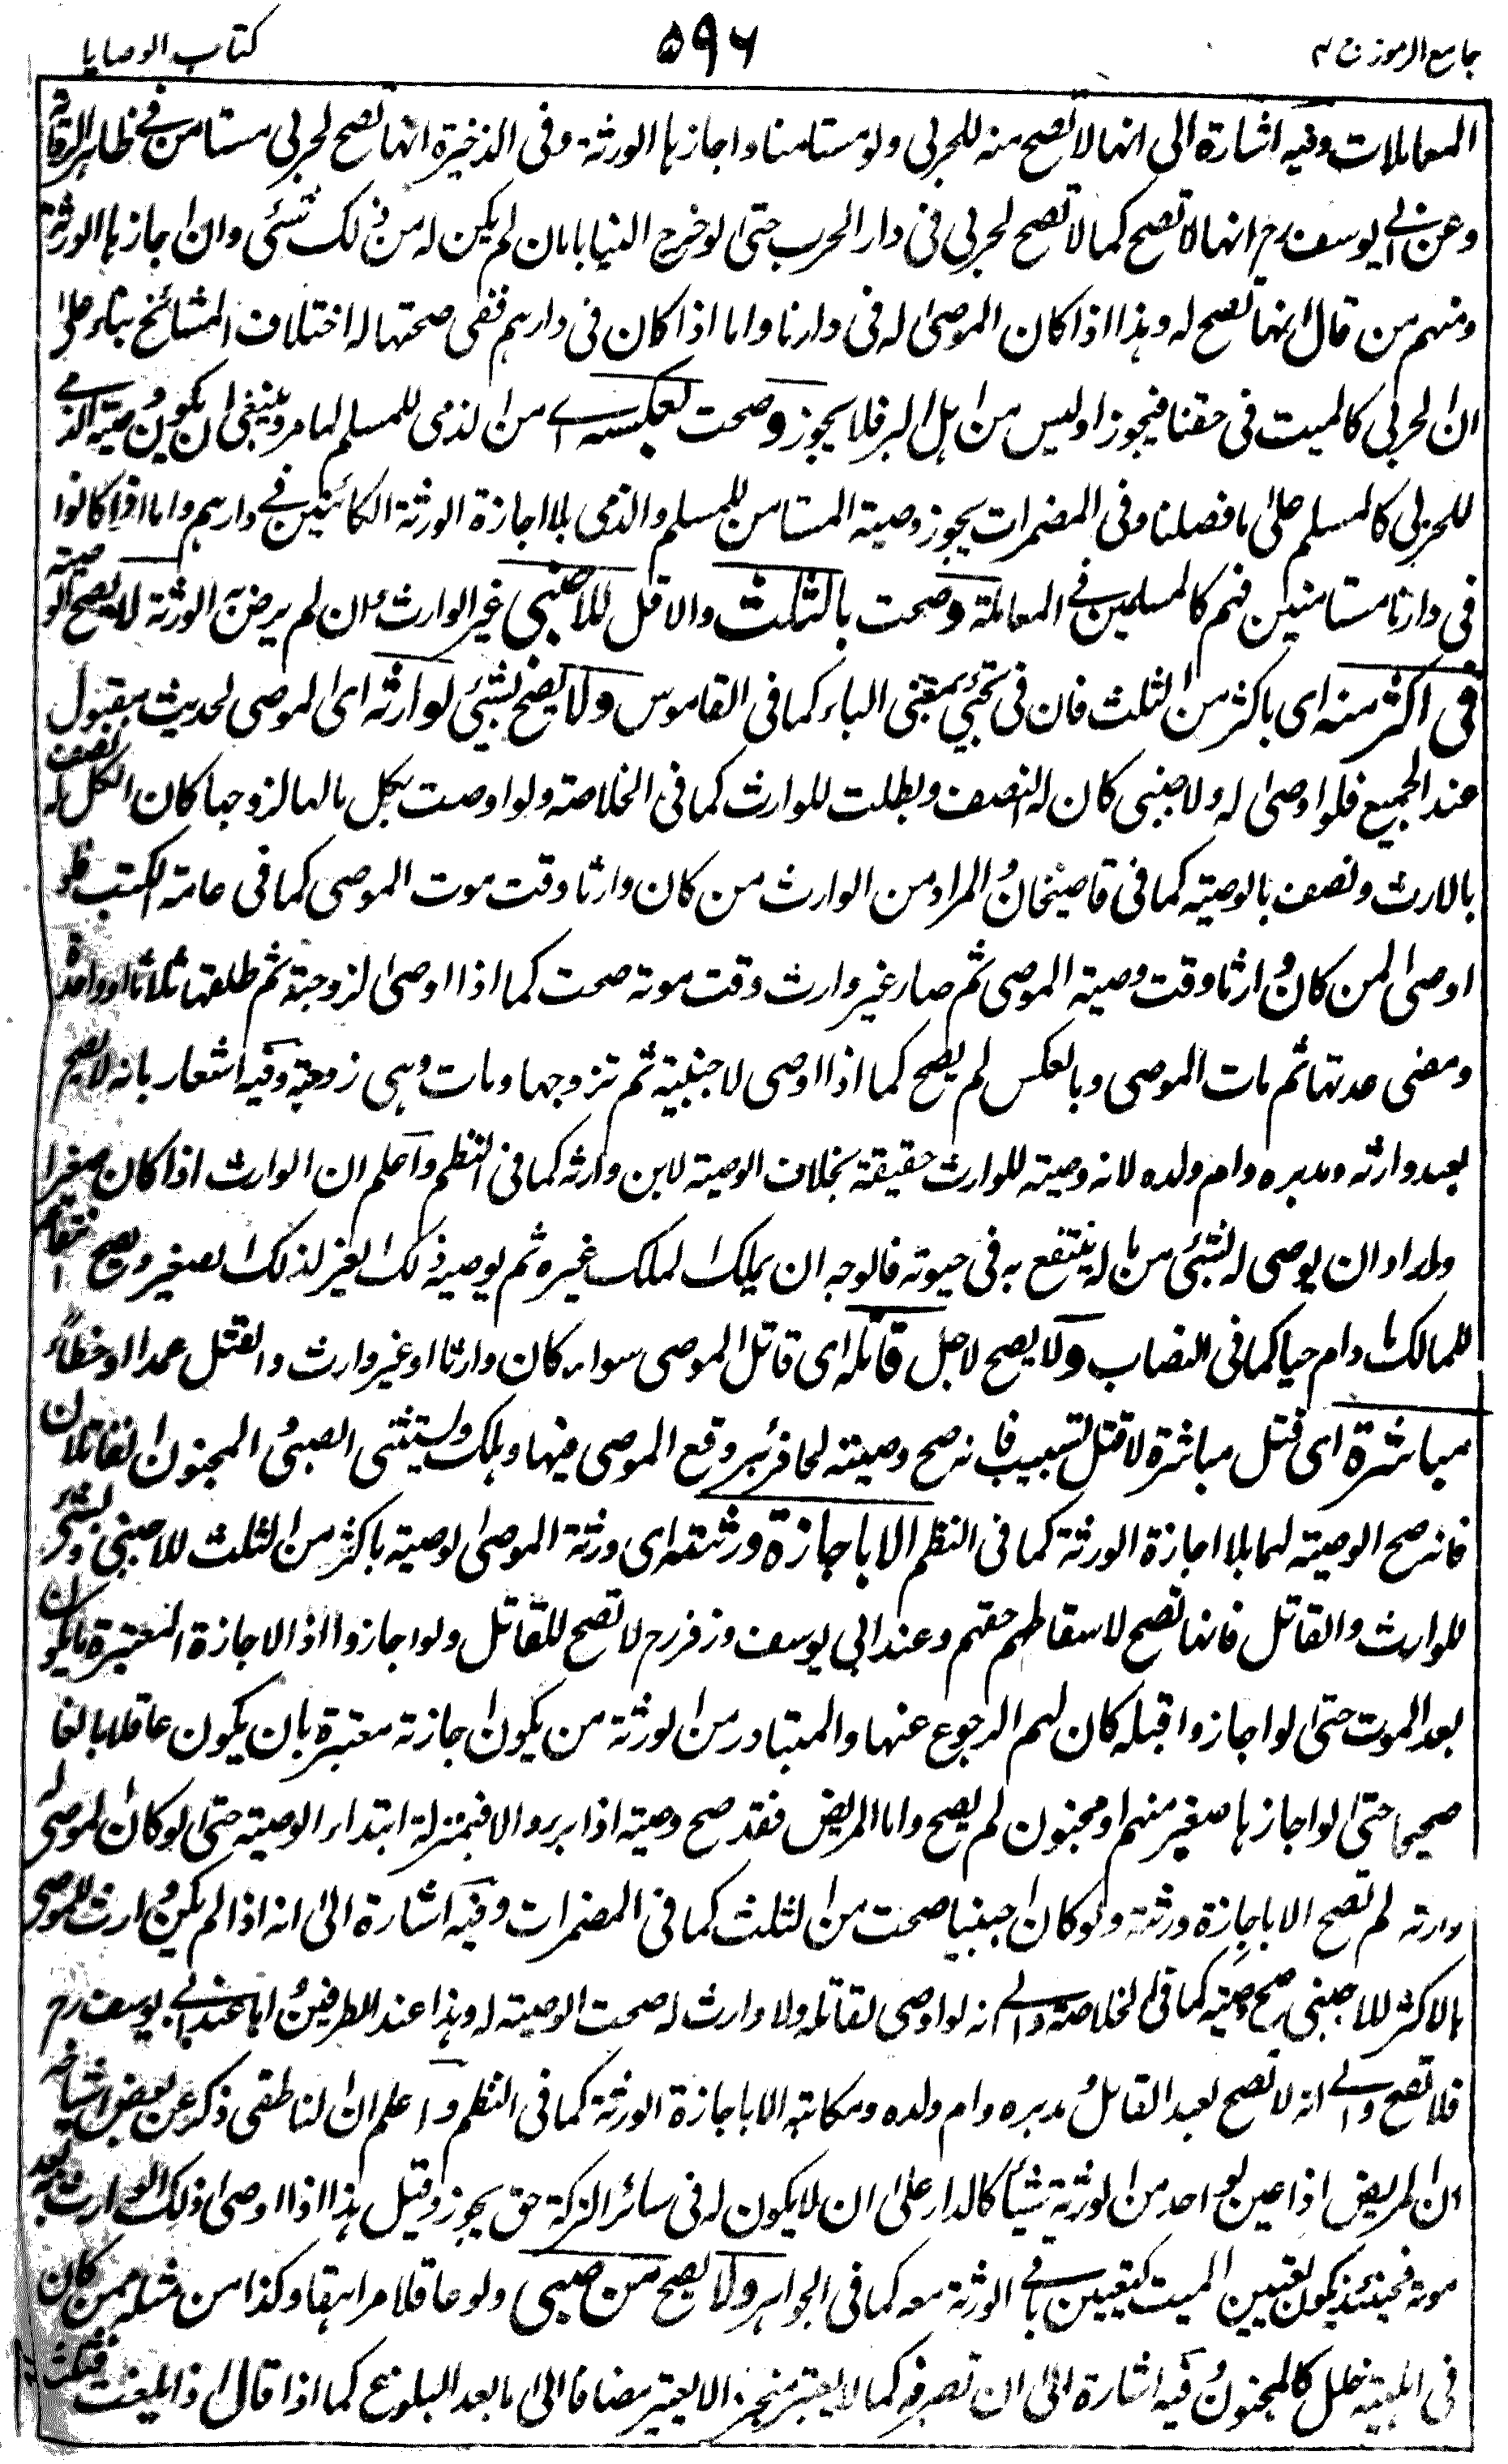 جامع الرموز ج ٢
٥٩٦
كتاب الوصايا
المعاملات وفيه اشارة الى انها لا تصح منه للحربي ولو مستامنا واجازها الورثة وفى الذخيرة انها تصح لحربي مستامن في ظاهر الرواية
وعن ابي يوسف رح انها لا تصح كما لا تصح لحربي فى دار الحرب حتى لو خرج الينا بامان لم يكن له من ذلك شئ وان اجازها الورثة
ومنهم من قال انها تصح له وهذا اذا كان الموصى له فى دارنا واما اذا كان فى دارهم ففى صحتها له اختلاف المشائخ بناء على
ان الحربي كالميت فى حقنا فيجوز او ليس من اهل البر فلا يجوز وصحت بعكسه اے من الذمى للمسلم لما مر وينبغى ان يكون وصية الذمے
للحربي كالمسلم على ما فصلنا وفى المضمرات يجوز وصية المستامن للمسلم والذمى بلا اجازة الورثة الكائنين فے دارهم واما اذا كانوا
فى دارنا مستامنين فهم كالمسلمين فے المعاملة وصحت بالثلث والاقل للاجنبى غير الوارث وان لم يرض به الورثة لا يصح الوصية
فى اكثر منه اى باكثر من الثلث فان فى تجئ بمعنى الباء كما فى القاموس ولا يصح بشئ لوارثه اى الموصى لحديث مقبول
عند الجميع فلو اوصى له ولاجنبى كان له النصف وبطلت للوارث كما فى الخلاصة ولو اوصت بكل مالها لزوجها كان الكل له نصف
بالارث ونصف بالوصية كما فى قاضيخان والمراد من الوارث من كان وارثا وقت موت الموصى كما فى عامة الكتب فلو
اوصى لمن كان وارثا وقت وصية الموصى ثم صار غير وارث وقت موته صحت كما اذا اوصى لزوجة ثم طلقها ثلاثا او واحدة
ومضى عدتها ثم مات الموصى وبالعكس لم يصح كما اذا اوصى لاجنبية ثم تزوجها ومات وهى زوجة وفيه اشعار بانه لا يصح
لعبد وارثه ومدبره وام ولده لانه وصية للوارث حقيقة بخلاف الوصية لابن وارثه كما فى النظم واعلم ان الوارث اذا كان صغيرا
ولو اراد ان يوصى له بشئ من ماله ينتفع به فى حيوته فالوجه ان يملك لملك غيره ثم يوصيه ذلك الغير لذلك الصغير ويصح
للمالك ما دام حيا كما فى النصاب ولا يصح لاجل قاتله اى قاتل الموصى سواء كان وارثا او غير وارث والقتل عمدا او خطأ
مباشرة اى قتل مباشرة لا قتل تسبيب فانه صح وصيته لحافر بئر وقع الموصى فيها وهلك ويستثنى الصبى والمجنون القاتلان
فانه صح الوصية لهما بلا اجازة الورثة كما فى النظم الا باجازة ورثته اى ورثة الموصى لوصية باكثر من الثلث للاجنبى وبشئ
للوارث والقاتل فانها تصح لاسقاطهم حقهم وعند ابى يوسف وزفر رح لا تصح للقاتل ولو اجازوا اذ الاجازة المعتبرة ما يكون
بعد الموت حتى لو اجازوا قبله كان لهم الرجوع عنها والمتبادر من الورثة من يكون اجازته معتبرة بان يكون عاقلا بالغا
صحيحا حتى لو اجازها صغير منهم او مجنون لم يصح واما المريض فقد صح وصية اذا برء والا فبمنزلة ابتداء الوصية حتى لو كان الموصى له
وارثه لم تصح الا باجازة ورثته ولو كان اجنبيا صحت من الثلث كما فى المضمرات وفيه اشارة الى انه اذا لم يكن وارث للموصى
بالاكثر للاجنبى صح وصية كما فى الخلاصة والى انه لو اوصى لقاتله ولا وارث له صحت الوصية له وهذا عند الطرفين واما عند ابي يوسف رح
فلا تصح والى انه لا تصح لعبد القاتل ومدبره وام ولده ومكاتبه الا باجازة الورثة كما فى النظم واعلم ان الناطقى ذكر عن بعض اشياخه
ان المريض اذا عين لواحد من الورثة شيأ كالدار على ان لا يكون له فى سائر التركة حق يجوز وقيل هذا اذا اوصى ذلك الوارث بعد
موته فحينئذ يكون تعيين الميت كتعيين باقے الورثة معه كما فى الجواهر ولا يصح من صبى ولو عاقلا مراهقا وكذا من مثله ممن كان
فى اهليته خلل كالمجنون وفيه اشارة الى ان تصرفه كما لا يعتبر منجزا لا يعتبر مضافا الى ما بعد البلوغ كما اذا قال اذا بلغت فثلث